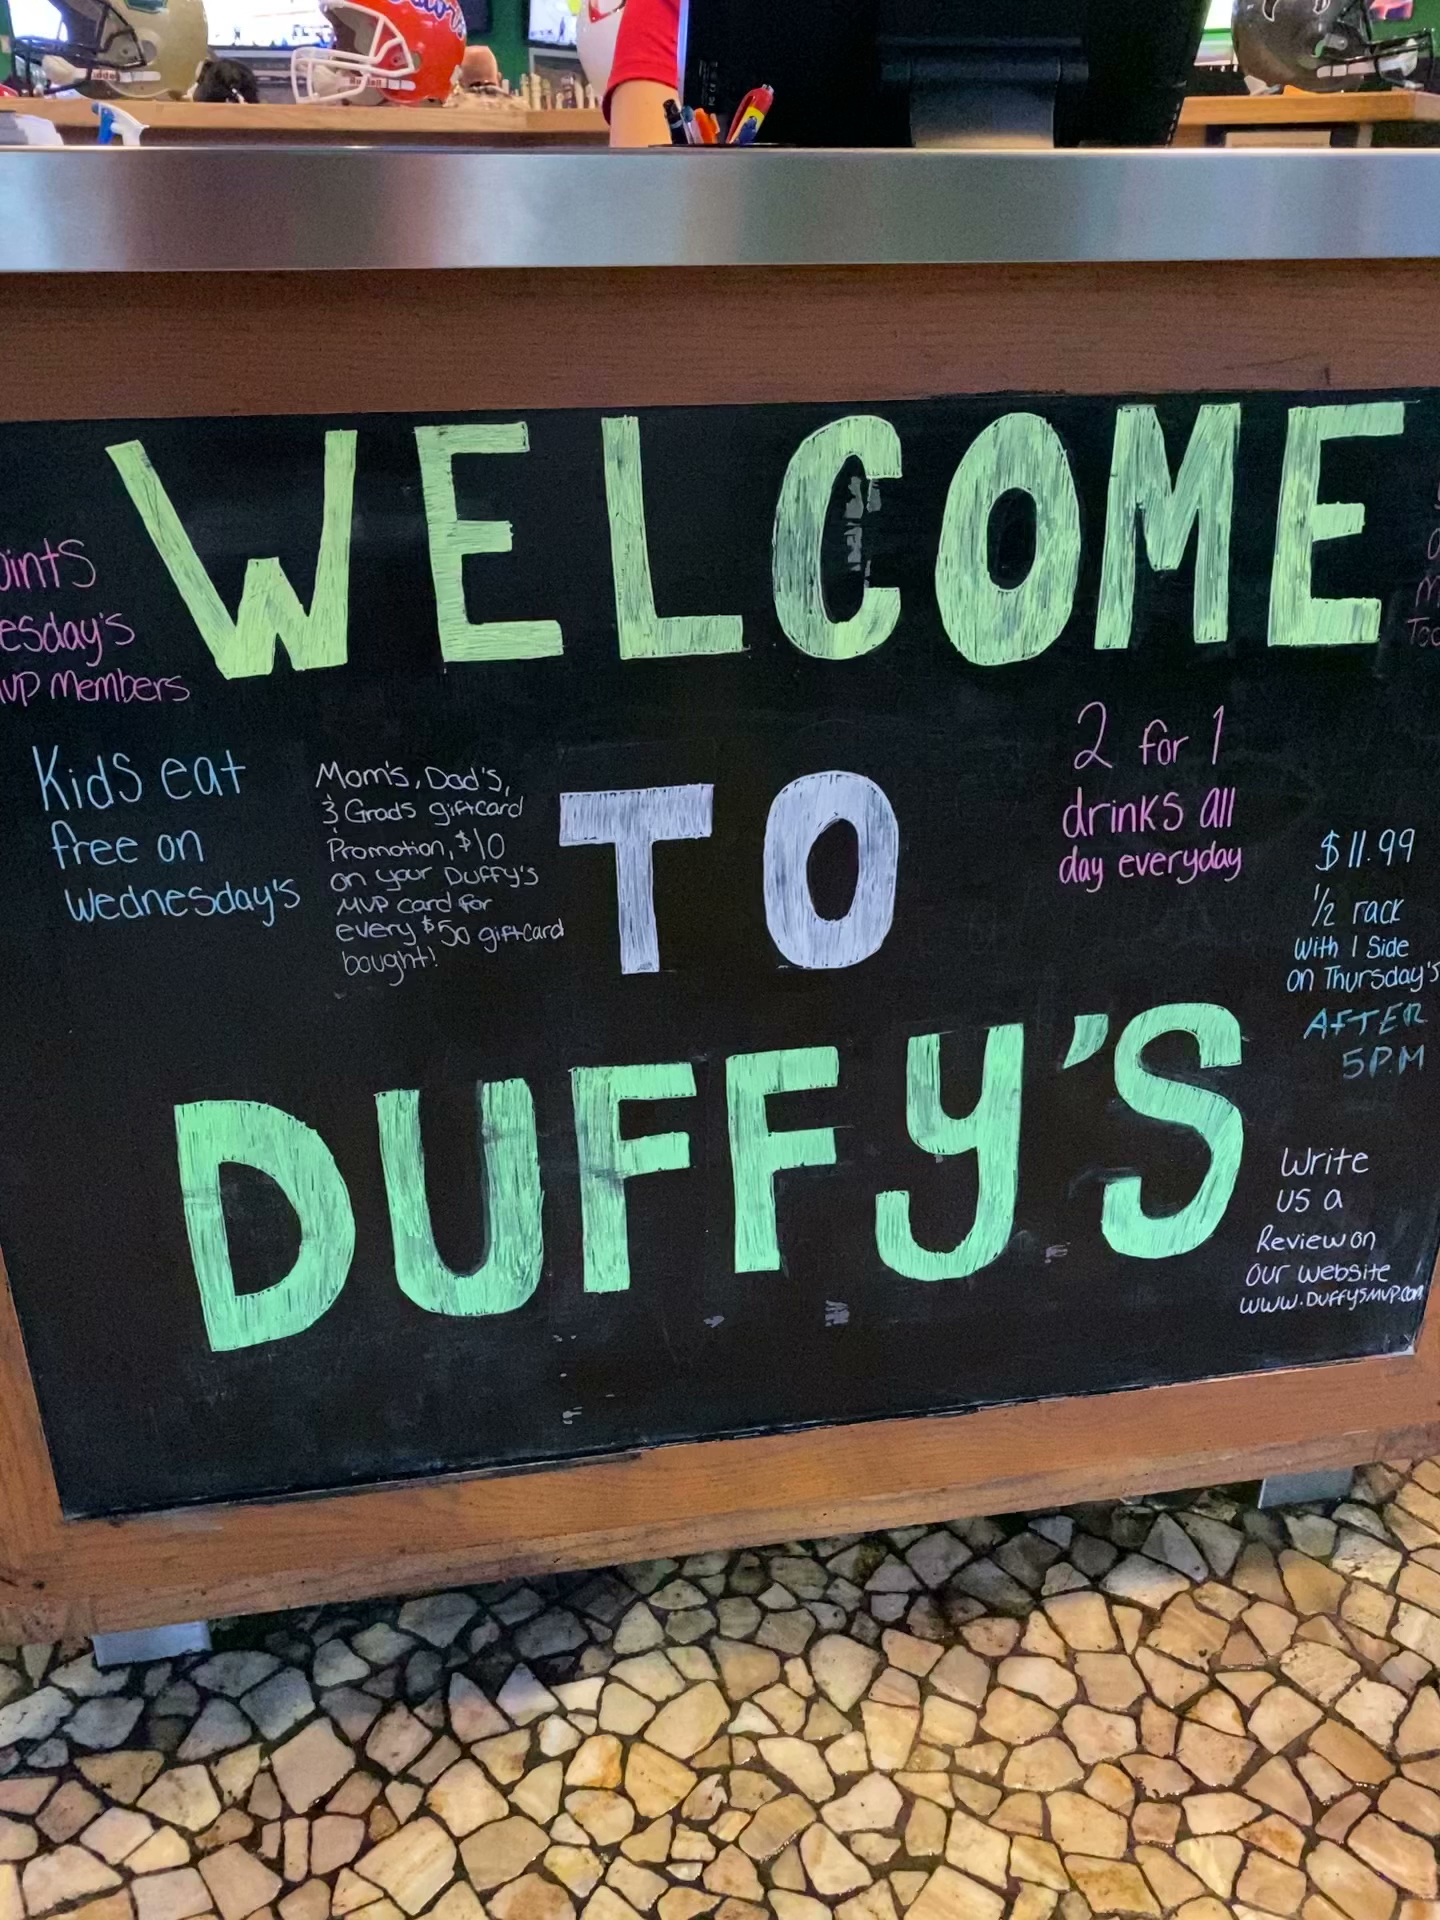 WELCOME
TO
DUFFY'S
MVP Members
Kids eat
free on
Wednesday's
Mom's, Dad's,
& Grads giftcard
Promotion, $10
on your Duffy's
MVP card for
every $50 giftcard
bought!
2 for 1
drinks all
day everyday
$11.99
1/2 rack
with 1 Side
on Thursday's
AFTER
5PM
Write
us a
Review on
our website
www.Duffysmvp.com